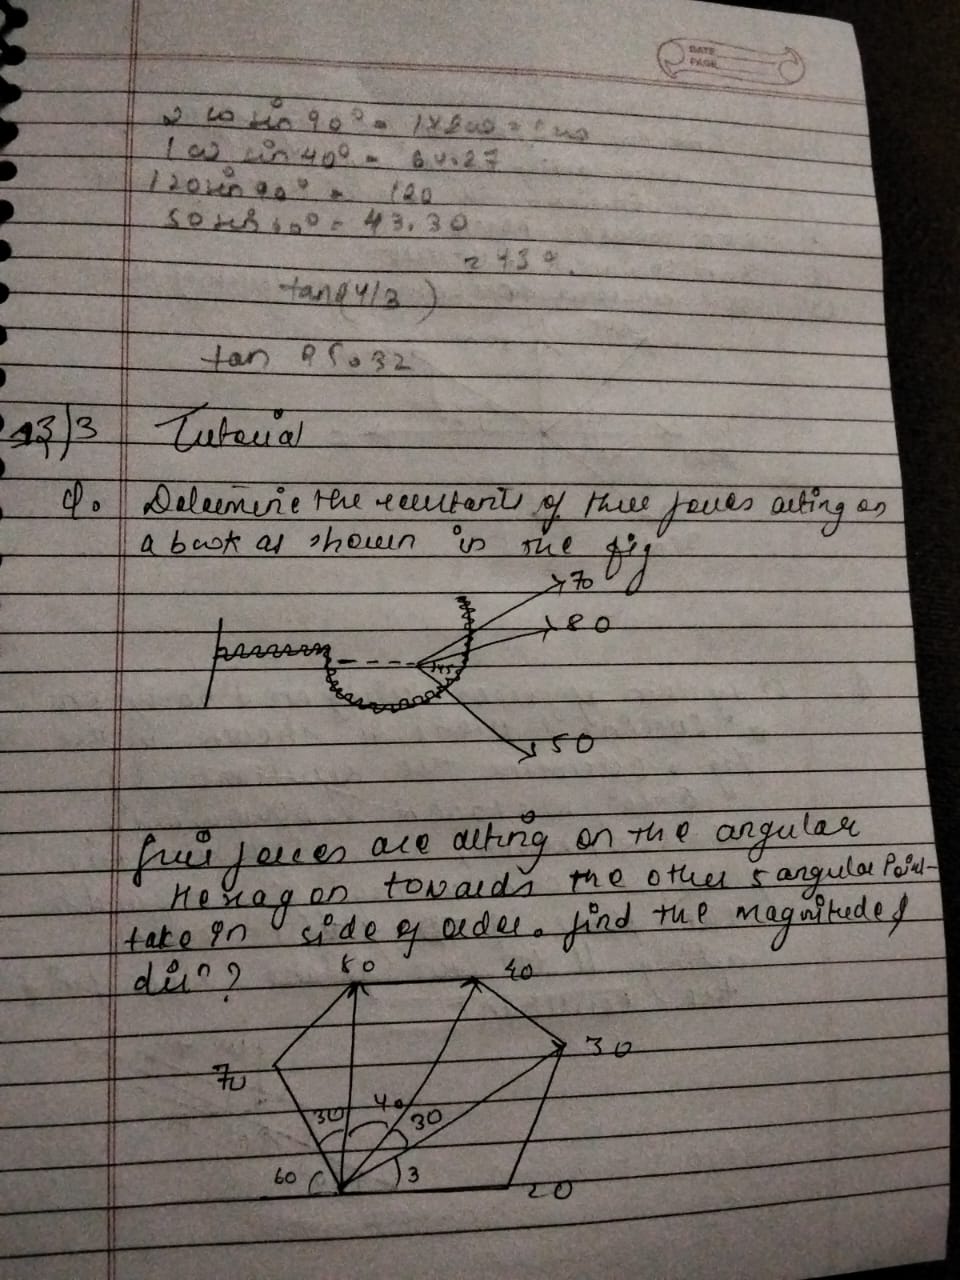 DATE
PAGE
sin 90° = 
sin 40° = 64.27
120 sin 90° = 120
50 = 43.30
tan
tan 95.32
3 Tutorial
Q. Determine the of three forces acting on
a as shown in the fig
70
80
45
50
forces are acting on the angular
Hexagon towards the other 5 angular Point
take in side of order. find the magnitude &
dirⁿ?
40
30
70
30 40 30
60 3
20